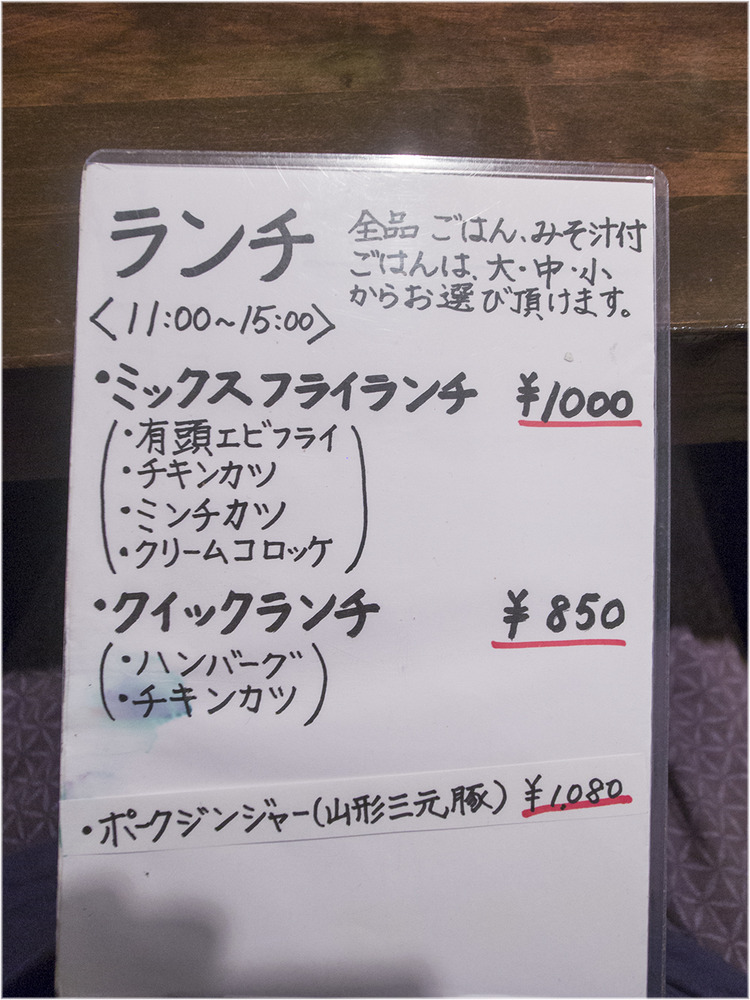 ランチ
全品 ごはん、みそ汁付
ごはんは、大・中・小
からお選び頂けます。
〈11:00~15:00〉
・ミックスフライランチ ¥1000
・有頭エビフライ
・チキンカツ
・ミンチカツ
・クリームコロッケ
・クイックランチ ¥850
・ハンバーグ
・チキンカツ
・ポークジンジャー(山形三元豚) ¥1,080